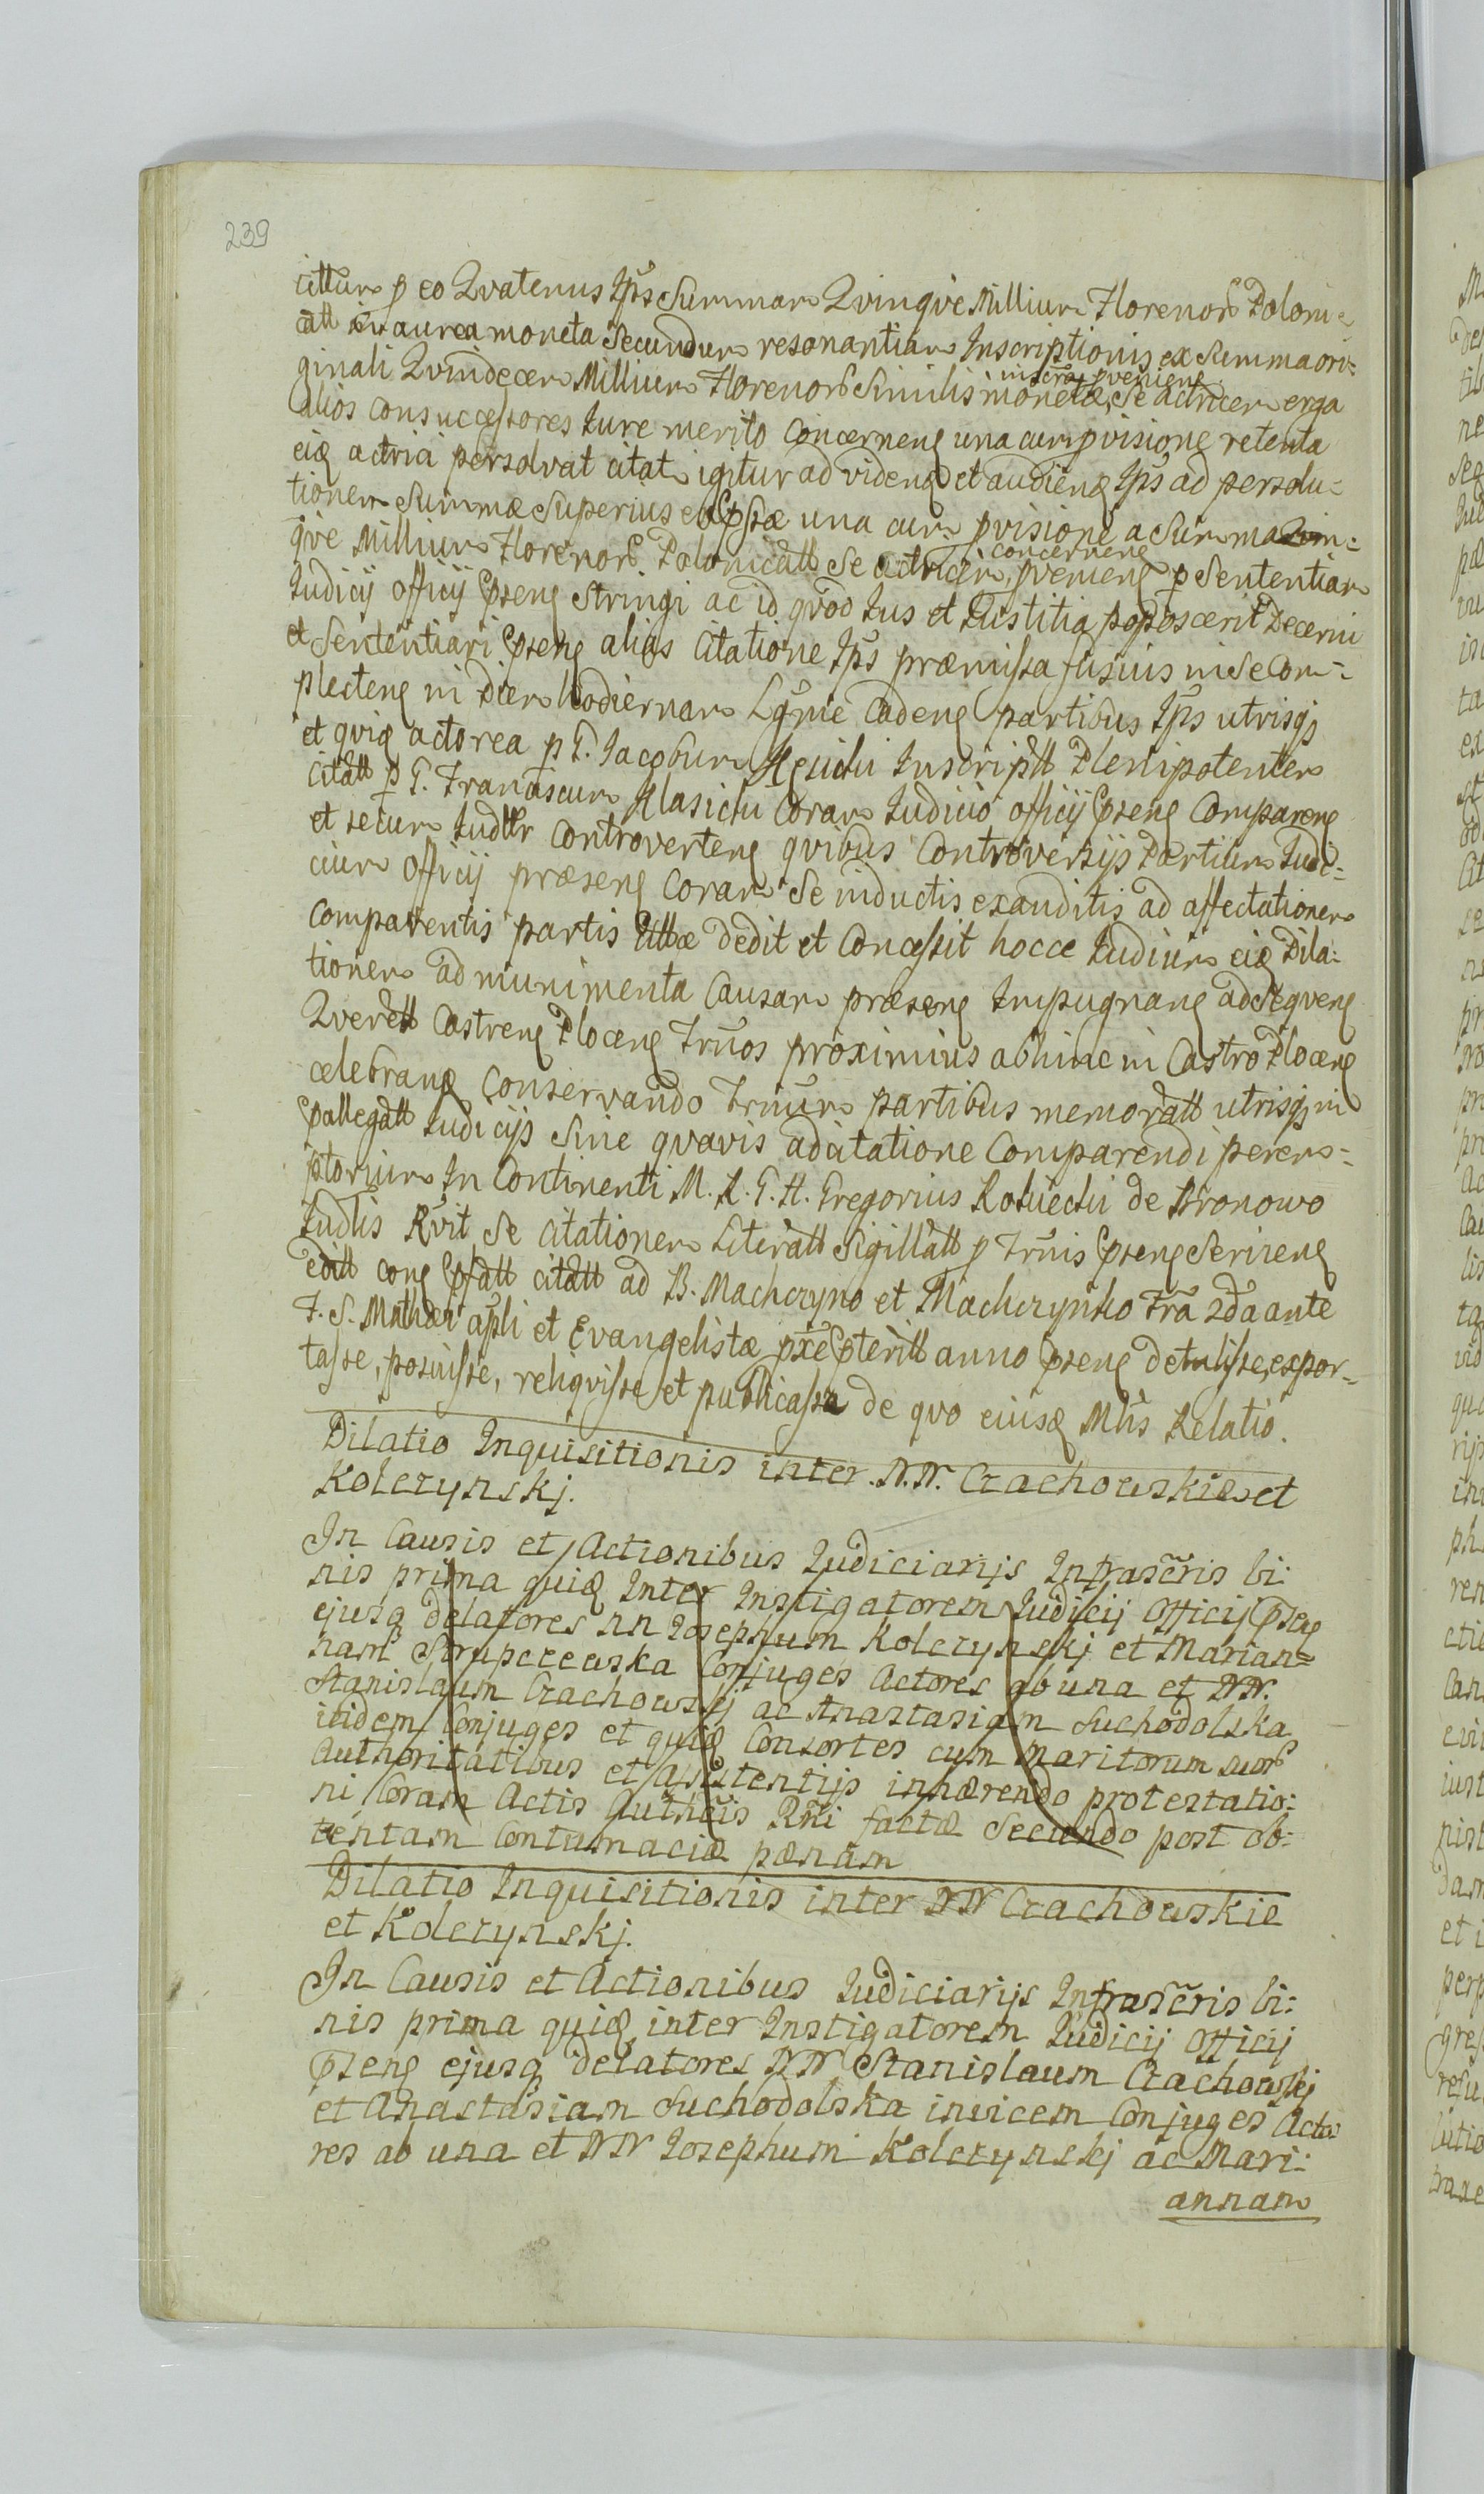 239
cittur p eo Qvatenus Ips Summam Qvinqve Millium Florenor Poloni-
catt in aurea moneta Secundum resonantiam Inscriptionis ex Summa ori-
ginali Qvindecem Millium Florenor Similis monetæ, Se actricem erga
alios consuccessores Jure merito Concernen una cum pvisione retenta
eiq actrici persolvat citat igitur ad viden et audien Ips ad persolu-
tionem Summæ Superius expssæ una cum pvisione a Summa Qvin-
qve Millium Florenor Polonicatt Se Actricem concernen pvenien p Sententiam
Judicij officij psen Stringi ac id qvod Jus et Justitia poposcerit Decerni
et Sententiari psen alias Citatione Ips præmissa fusius in Se Com-
plecten in Diem hodiernam Lgme Caden partibus Ips utrisq
et qviq actorea p G. Jacobum Inscriptt Plenipotentem
Citatt p G. Franciscum Klasicki Coram Judicio officij psen Comparen
et secum Judltr Controverten qvibus Controversijs Partium Judi-
cium officij præsen Coram Se inductis exauditis ad affectationem
comparentis partis Cittæ dedit et Concessit hocce Judicium eiq Dila-
tionem ad munimenta Causam præsen Impugnan ad Seqven
Qverell Castren Plocen Trmos proximius abhinc in Castro Plocen
celebran Conservando Trmum partibus memoratt utrisq in
pallegatt Judicijs Sine qvavis adcitatione Comparendi perem-
ptorium In Continenti M. R. G. H. Gregorius de Bronowo
Judlis Rvit Se Citationem Literatt Sigillatt p Trmis psen Serien
editt con psatt citatt ad B. Machczyno et Machczynko Fra 2da ante
F. S. Mathæi apli et Evangelistæ pxe pteritt anno psen detulisse, expor-
tasse, posuisse, reliqvisse et publicasse de qvo eiusq Mlis Relatio.
Dilatio Inquisitionis inter N.N. Czachowskie et
Kolczynskj.
In Causis et Actionibus Judiciarijs Infrascris bi-
nis prima quiq Inter Instigatorem Judicij Officij psen
ejusq delatores NN Josephum Kolczynskj et Marian=
nam Strupczewska Conjuges Actores ab una et NN.
Stanislaum Czachowskj ac Anastasiam Suchodolska
itidem Conjuges et quiq Consortes cum Maritorum suor
Authoritatibus et Assistentijs inhærendo protestatio-
ni Coram Actis Authcis Rni factæ Secundo post ob-
tentam Contumaciæ pænam
Dilatio Inquisitionis inter NN Czachowskie
et Kolczynskj.
In Causis et Actionibus Judiciarijs Infrascris bi-
nis prima quiq inter Instigatorem Judicij Officij
psen ejusq delatores NN Stanislaum Czachowskj
et Anastasiam Suchodolska invicem Conjuges Acto-
res ab una et NN Josephum Kolczynskj ac Mari-
annam